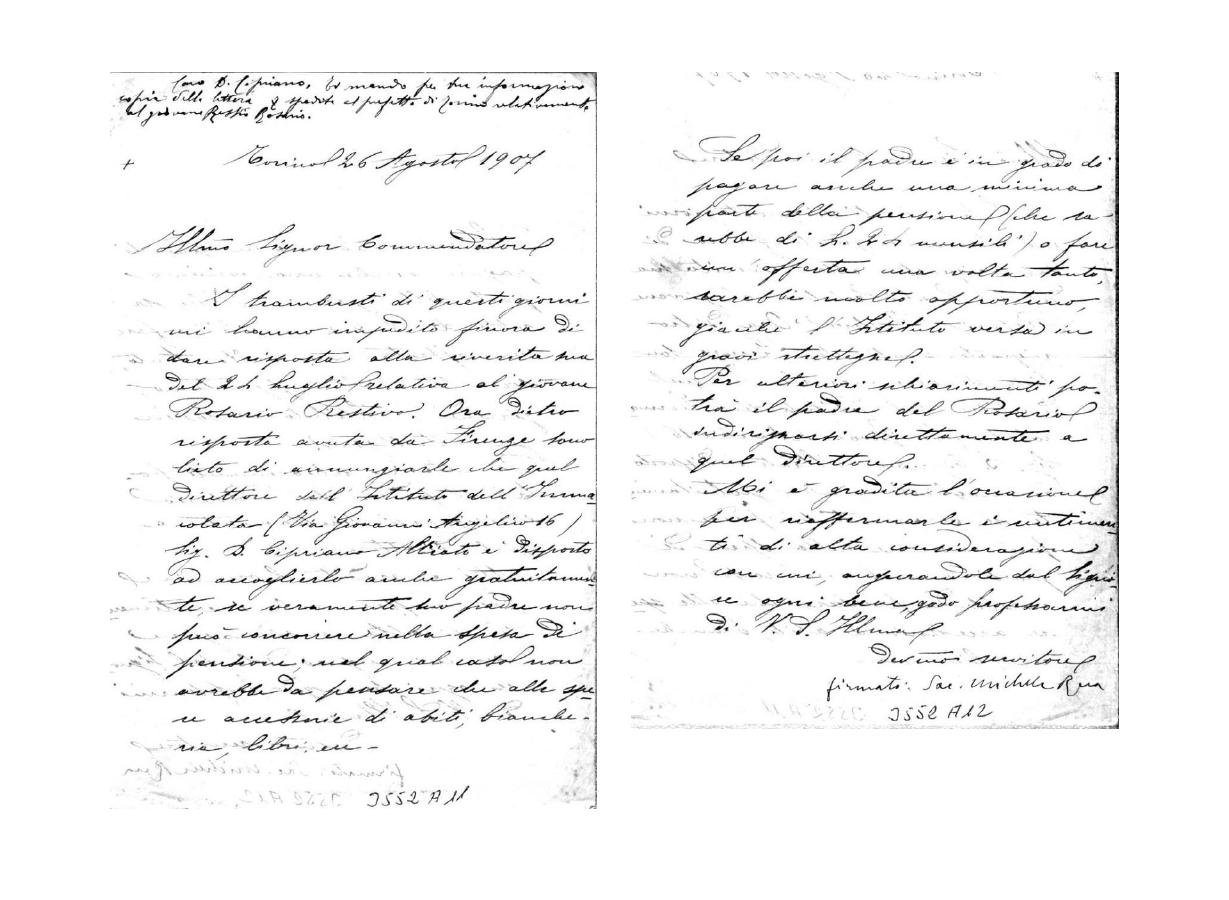 Caro D. Cipriano, Vi mando per tua informazione
copia della lettera spedita al prefetto di Torino relativamente
al giovane Restivo Rosario.
+ Torino 26 Agosto 1907
Ill.mo Signor Commendatore
I trambusti di questi giorni
mi hanno impedito finora di
dare risposta alla riverita sua
del 24 Luglio relativa al giovane
Rosario Restivo. Ora dietro
risposta avuta da Firenze sono
lieto di annunziarle che quel
direttore dell'Istituto dell'Imma-
colata (Via Giovanni Angelico 16)
Sig. D. Cipriano Altiato è disposto
ad accoglierlo anche gratuitamen-
te, se veramente suo padre non
può concorrere nella spesa di
pensione; nel qual caso non
avrebbe da pensare che alle spe-
se accessorie di abiti, bianche-
ria, libri, ecc-
J552 A11
Se poi il padre è in grado di
pagare anche una minima
parte della pensione (che sa-
rebbe di L. 24 mensili) o fare
un'offerta una volta tanto,
sarebbe molto opportuno,
giacché l'Istituto versa in
gravi strettezze.
Per ulteriori schiarimenti po-
trà il padre del Rosario
indirizzarsi direttamente a
quel Direttore.
Mi è gradita l'occasione
per riaffermarle i sentimen-
ti di alta considerazione
con cui, augurandole dal Signo-
re ogni bene, godo professarmi
di V. S. Ill.ma
Dev.mo servitore
firmato: Sac. Michele Rua
J552 A12